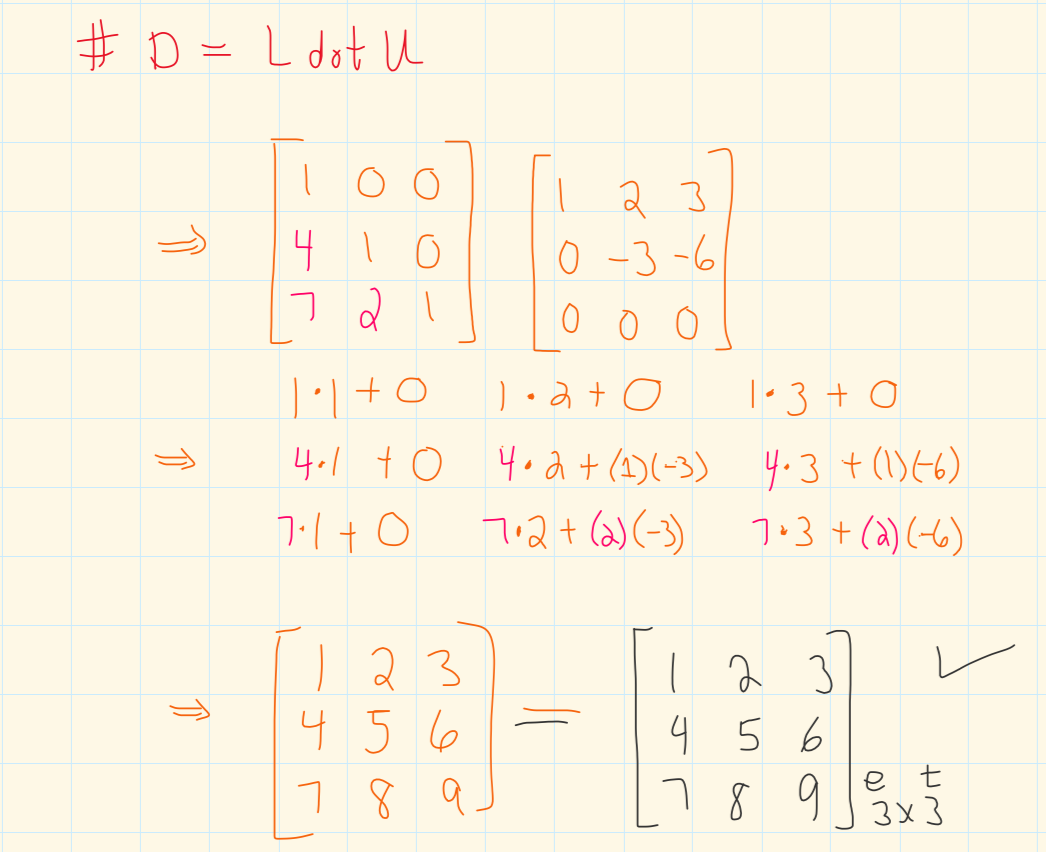 # D = L dot U
⇒ [1 0 0; 4 1 0; 7 2 1] [1 2 3; 0 -3 -6; 0 0 0]
1·1 + 0   1·2 + 0   1·3 + 0
⇒ 4·1 + 0   4·2 + (1)(-3)   4·3 + (1)(-6)
7·1 + 0   7·2 + (2)(-3)   7·3 + (2)(-6)
⇒ [1 2 3; 4 5 6; 7 8 9] = [1 2 3; 4 5 6; 7 8 9] ✓
e t
3×3